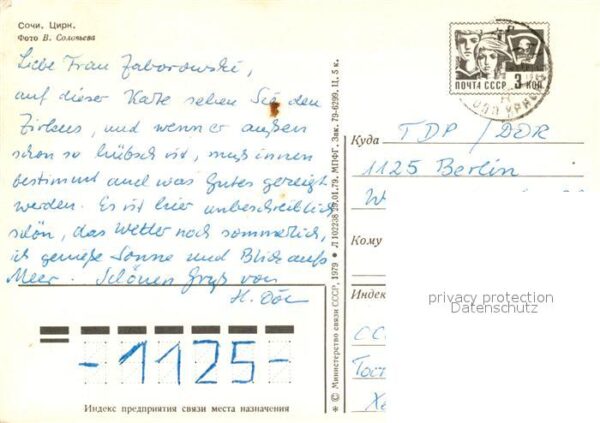 Сочи. Цирк.
Фото В. Соловьева
Liebe Frau Zaborowski,
auf dieser Karte sehen Sie den
Zirkus, und wenn er außen
schon so hübsch ist, muß innen
bestimmt auch was Gutes gezeigt
werden. Es ist hier unbeschreiblich
schön, das Wetter noch sommerlich,
ich genieße Sonne und Blick aufs
Meer. Schönen Gruß von
H.
-1125-
Индекс предприятия связи места назначения
* © Министерство связи СССР, 1979 ● Л 102238 29.01.79. МПФГ. Зак. 79-6299. II. 5 к.
ПОЧТА СССР 3 КОП
Куда ГДР / DDR
1125 Berlin
W
Кому
Индекс
privacy protection
Datenschutz
СС
Гост